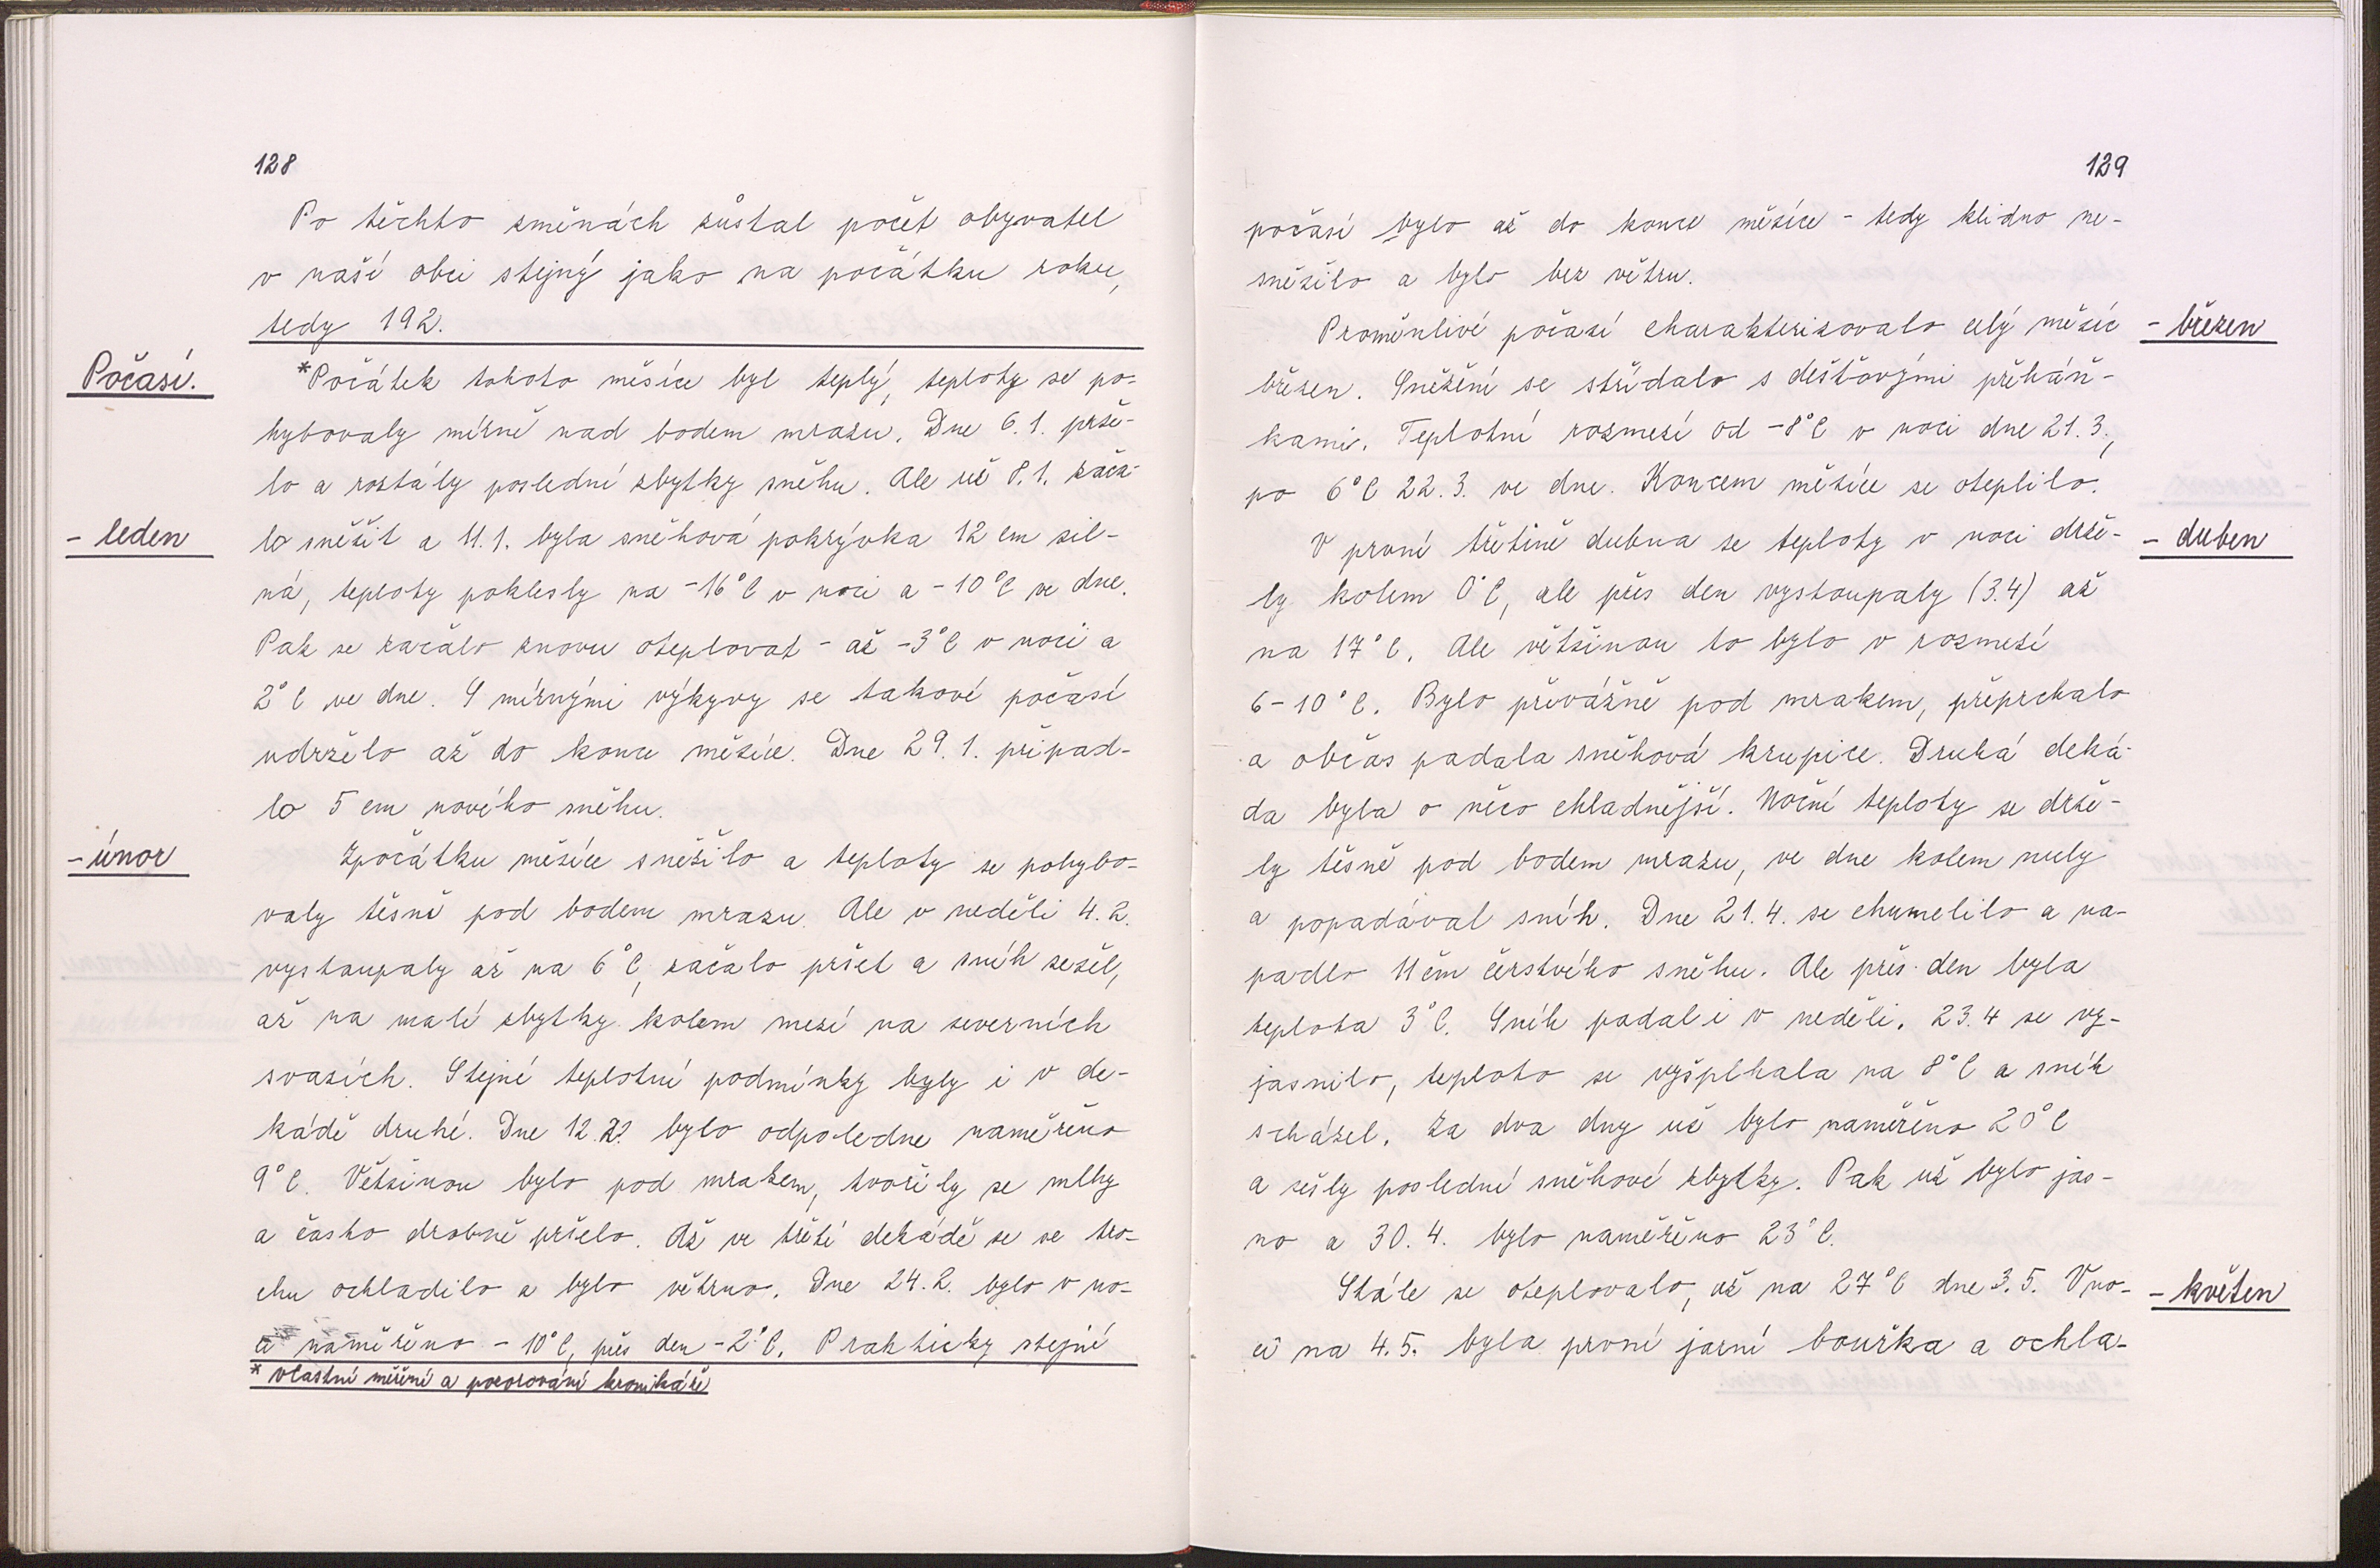 128
Po těchto změnách zůstal počet obyvatel
v naší obci stejný jako na počátku roku,
tedy 192.
Počasí.
*Počátek tohoto měsíce byl teplý, teploty se po-
hybovaly mírně nad bodem mrazu. Dne 6.1. prše-
lo a roztály poslední zbytky sněhu. Ale už 8.1. zača-
- leden
lo sněžit a 11.1. byla sněhová pokrývka 12 cm sil-
ná, teploty poklesly na -16°C v noci a -10°C ve dne.
Pak se začalo znovu oteplovat - až -3°C v noci a
2°C ve dne. S mírnými výkyvy se takové počasí
udrželo až do konce měsíce. Dne 29.1. připad-
lo 5 cm nového sněhu.
- únor
Zpočátku měsíce sněžilo a teploty se pohybo-
valy těsně pod bodem mrazu. Ale v neděli 4.2.
vystoupaly až na 6°C, začalo pršet a sníh sešel,
až na malé zbytky kolem mezí na severních
svazích. Stejné teplotní podmínky byly i v de-
kádě druhé. Dne 12.2. bylo odpoledne naměřeno
9°C. Většinou bylo pod mrakem, tvořily se mlhy
a často drobně pršelo. Až ve třetí dekádě se se tro-
chu ochladilo a bylo větrno. Dne 24.2. bylo v no-
ci naměřeno -10°C, přes den -2°C. Prakticky stejné
* vlastní měření a pozorování kronikáře
129
počasí bylo až do konce měsíce - tedy klidno ne-
sněžilo a bylo bez větru.
Proměnlivé počasí charakterizovalo celý měsíc
- březen
březen. Sněžení se střídalo s dešťovými přeháň-
kami. Teplotní rozmezí od -8°C v noci dne 21.3.,
po 6°C 22.3. ve dne. Koncem měsíce se oteplilo.
V první třetině dubna se teploty v noci drže-
- duben
ly kolem 0°C, ale přes den vystoupaly (3.4) až
na 17°C. Ale většinou to bylo v rozmezí
6-10°C. Bylo převážně pod mrakem, přeprchalo
a občas padala sněhová krupice. Druhá deká-
da byla o něco chladnější. Noční teploty se drže-
ly těsně pod bodem mrazu, ve dne kolem nuly
a popadával sníh. Dne 21.4. se chumelilo a na-
padlo 11 cm čerstvého sněhu. Ale přes den byla
teplota 3°C. Sníh padal i v neděli. 23.4 se vy-
jasnilo, teploto se vyšplhala na 8°C a sníh
scházel. Za dva dny už bylo naměřeno 20°C
a sešly poslední sněhové zbytky. Pak už bylo jas-
no a 30.4. bylo naměřeno 23°C.
Stále se oteplovalo, až na 27°C dne 3.5. V no-
- květen
ci na 4.5. byla první jarní bouřka a ochla-